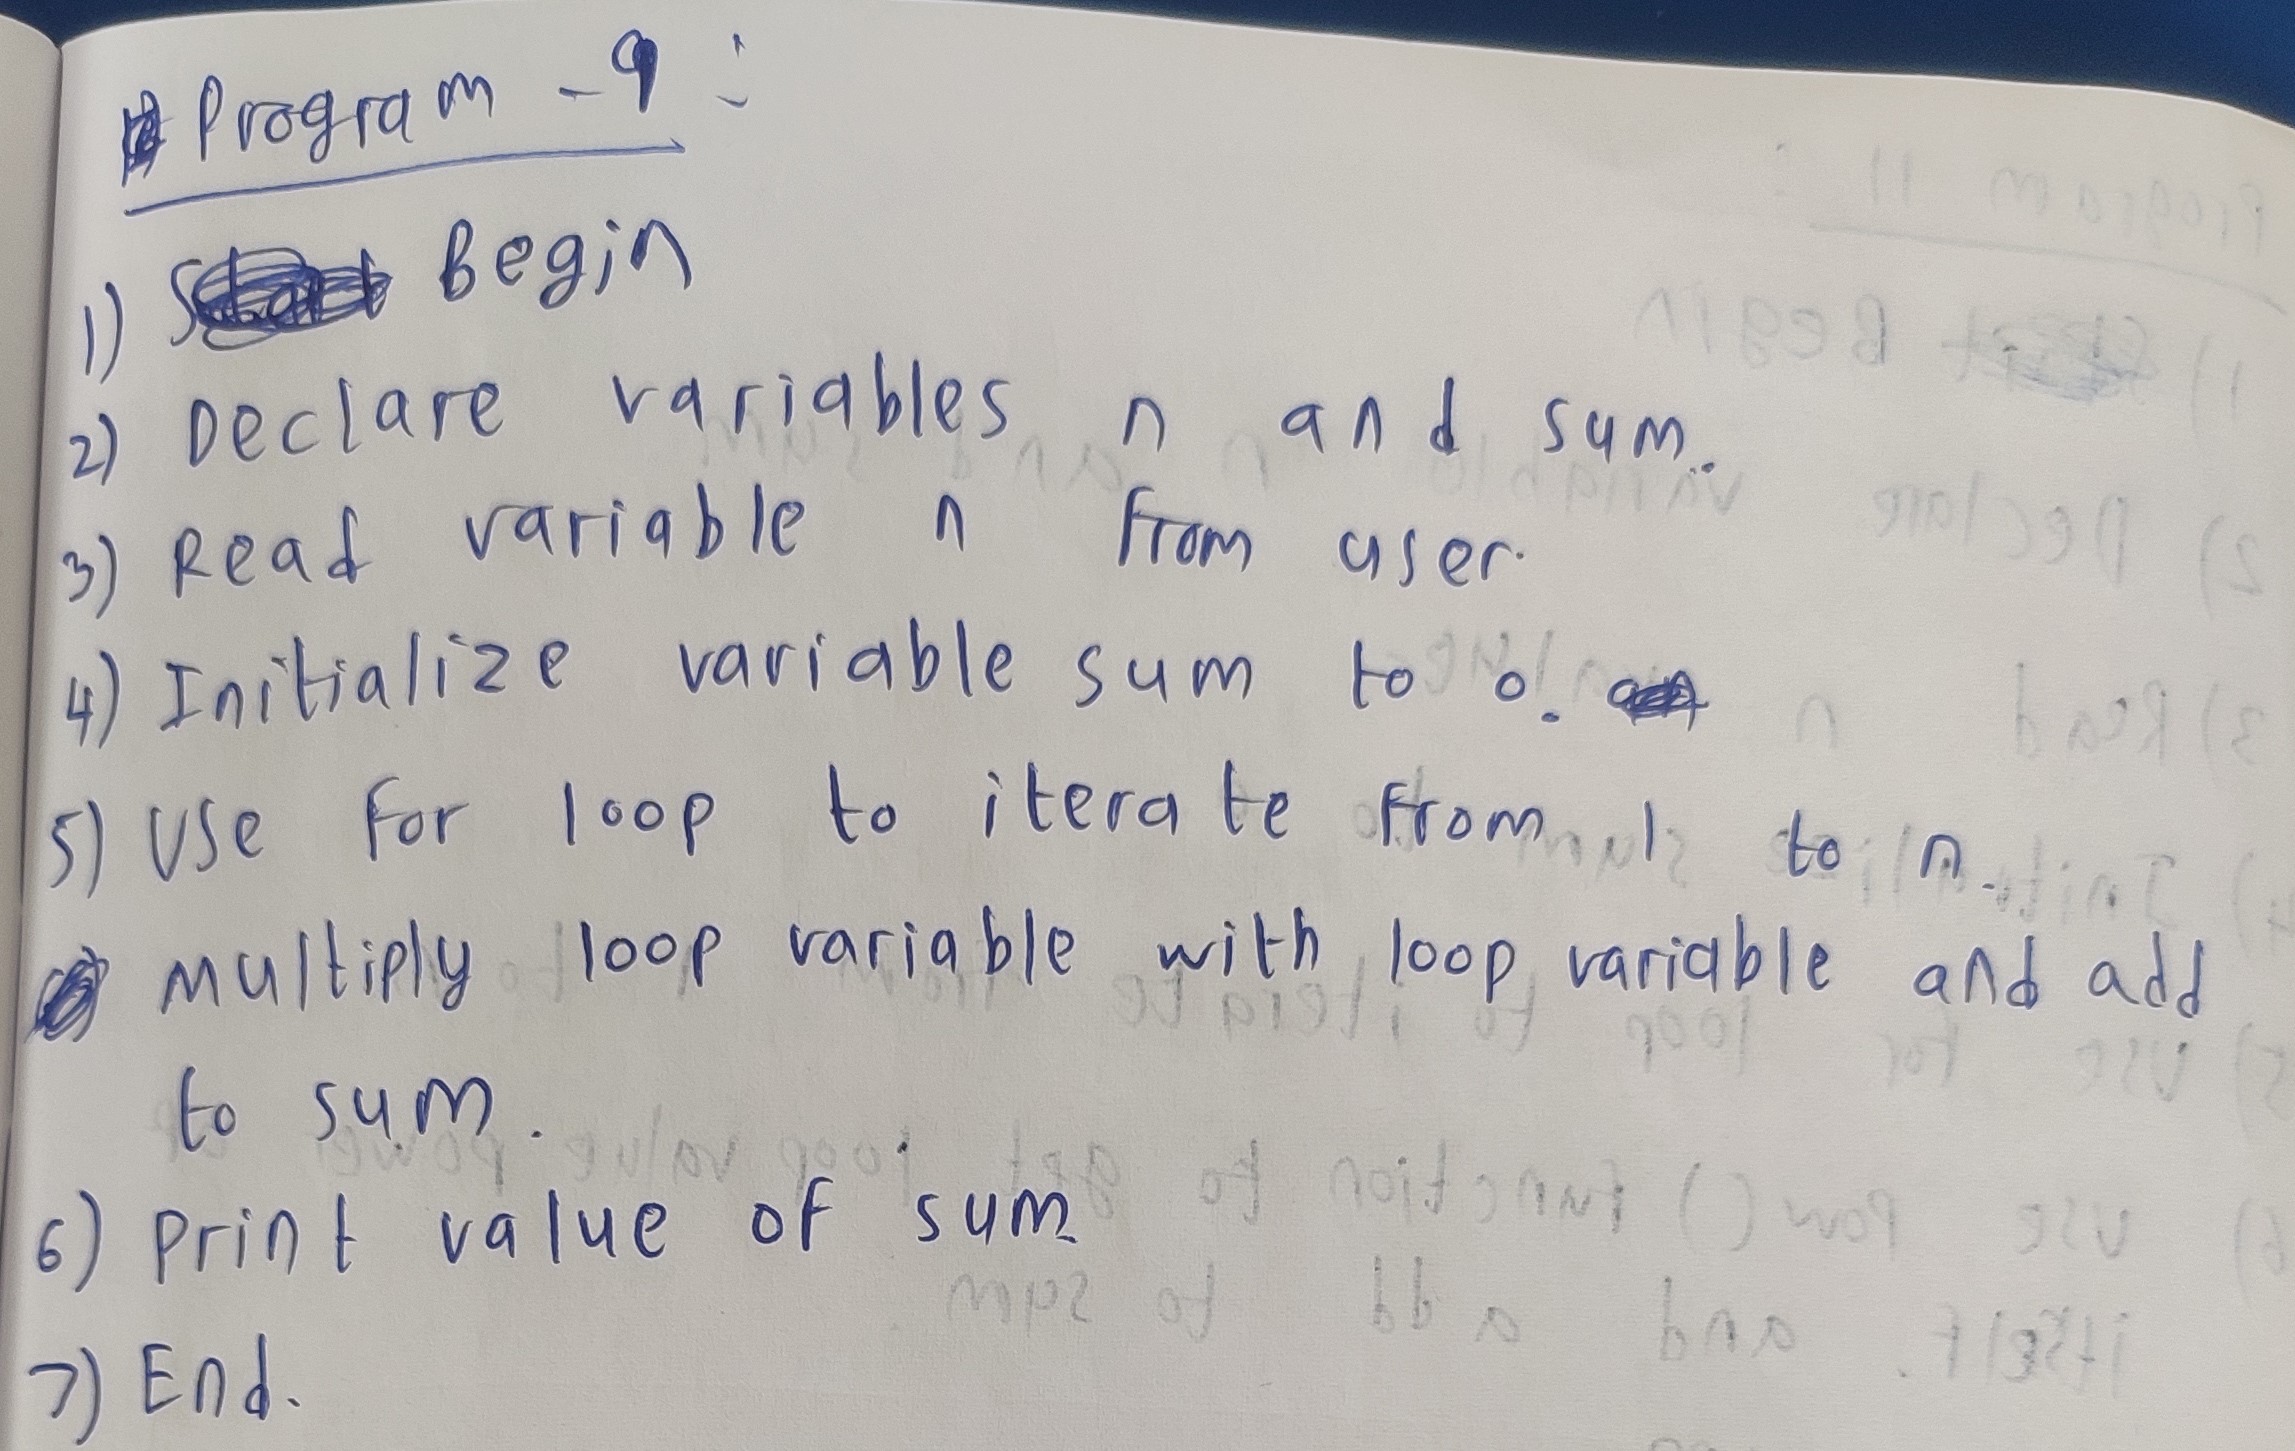 Program - 9 :
1) Begin
2) Declare variables n and sum.
3) Read variable n from user.
4) Initialize variable sum to 0.
5) Use for loop to iterate from 1 to n.
multiply loop variable with loop variable and add
to sum.
6) print value of sum
7) End.